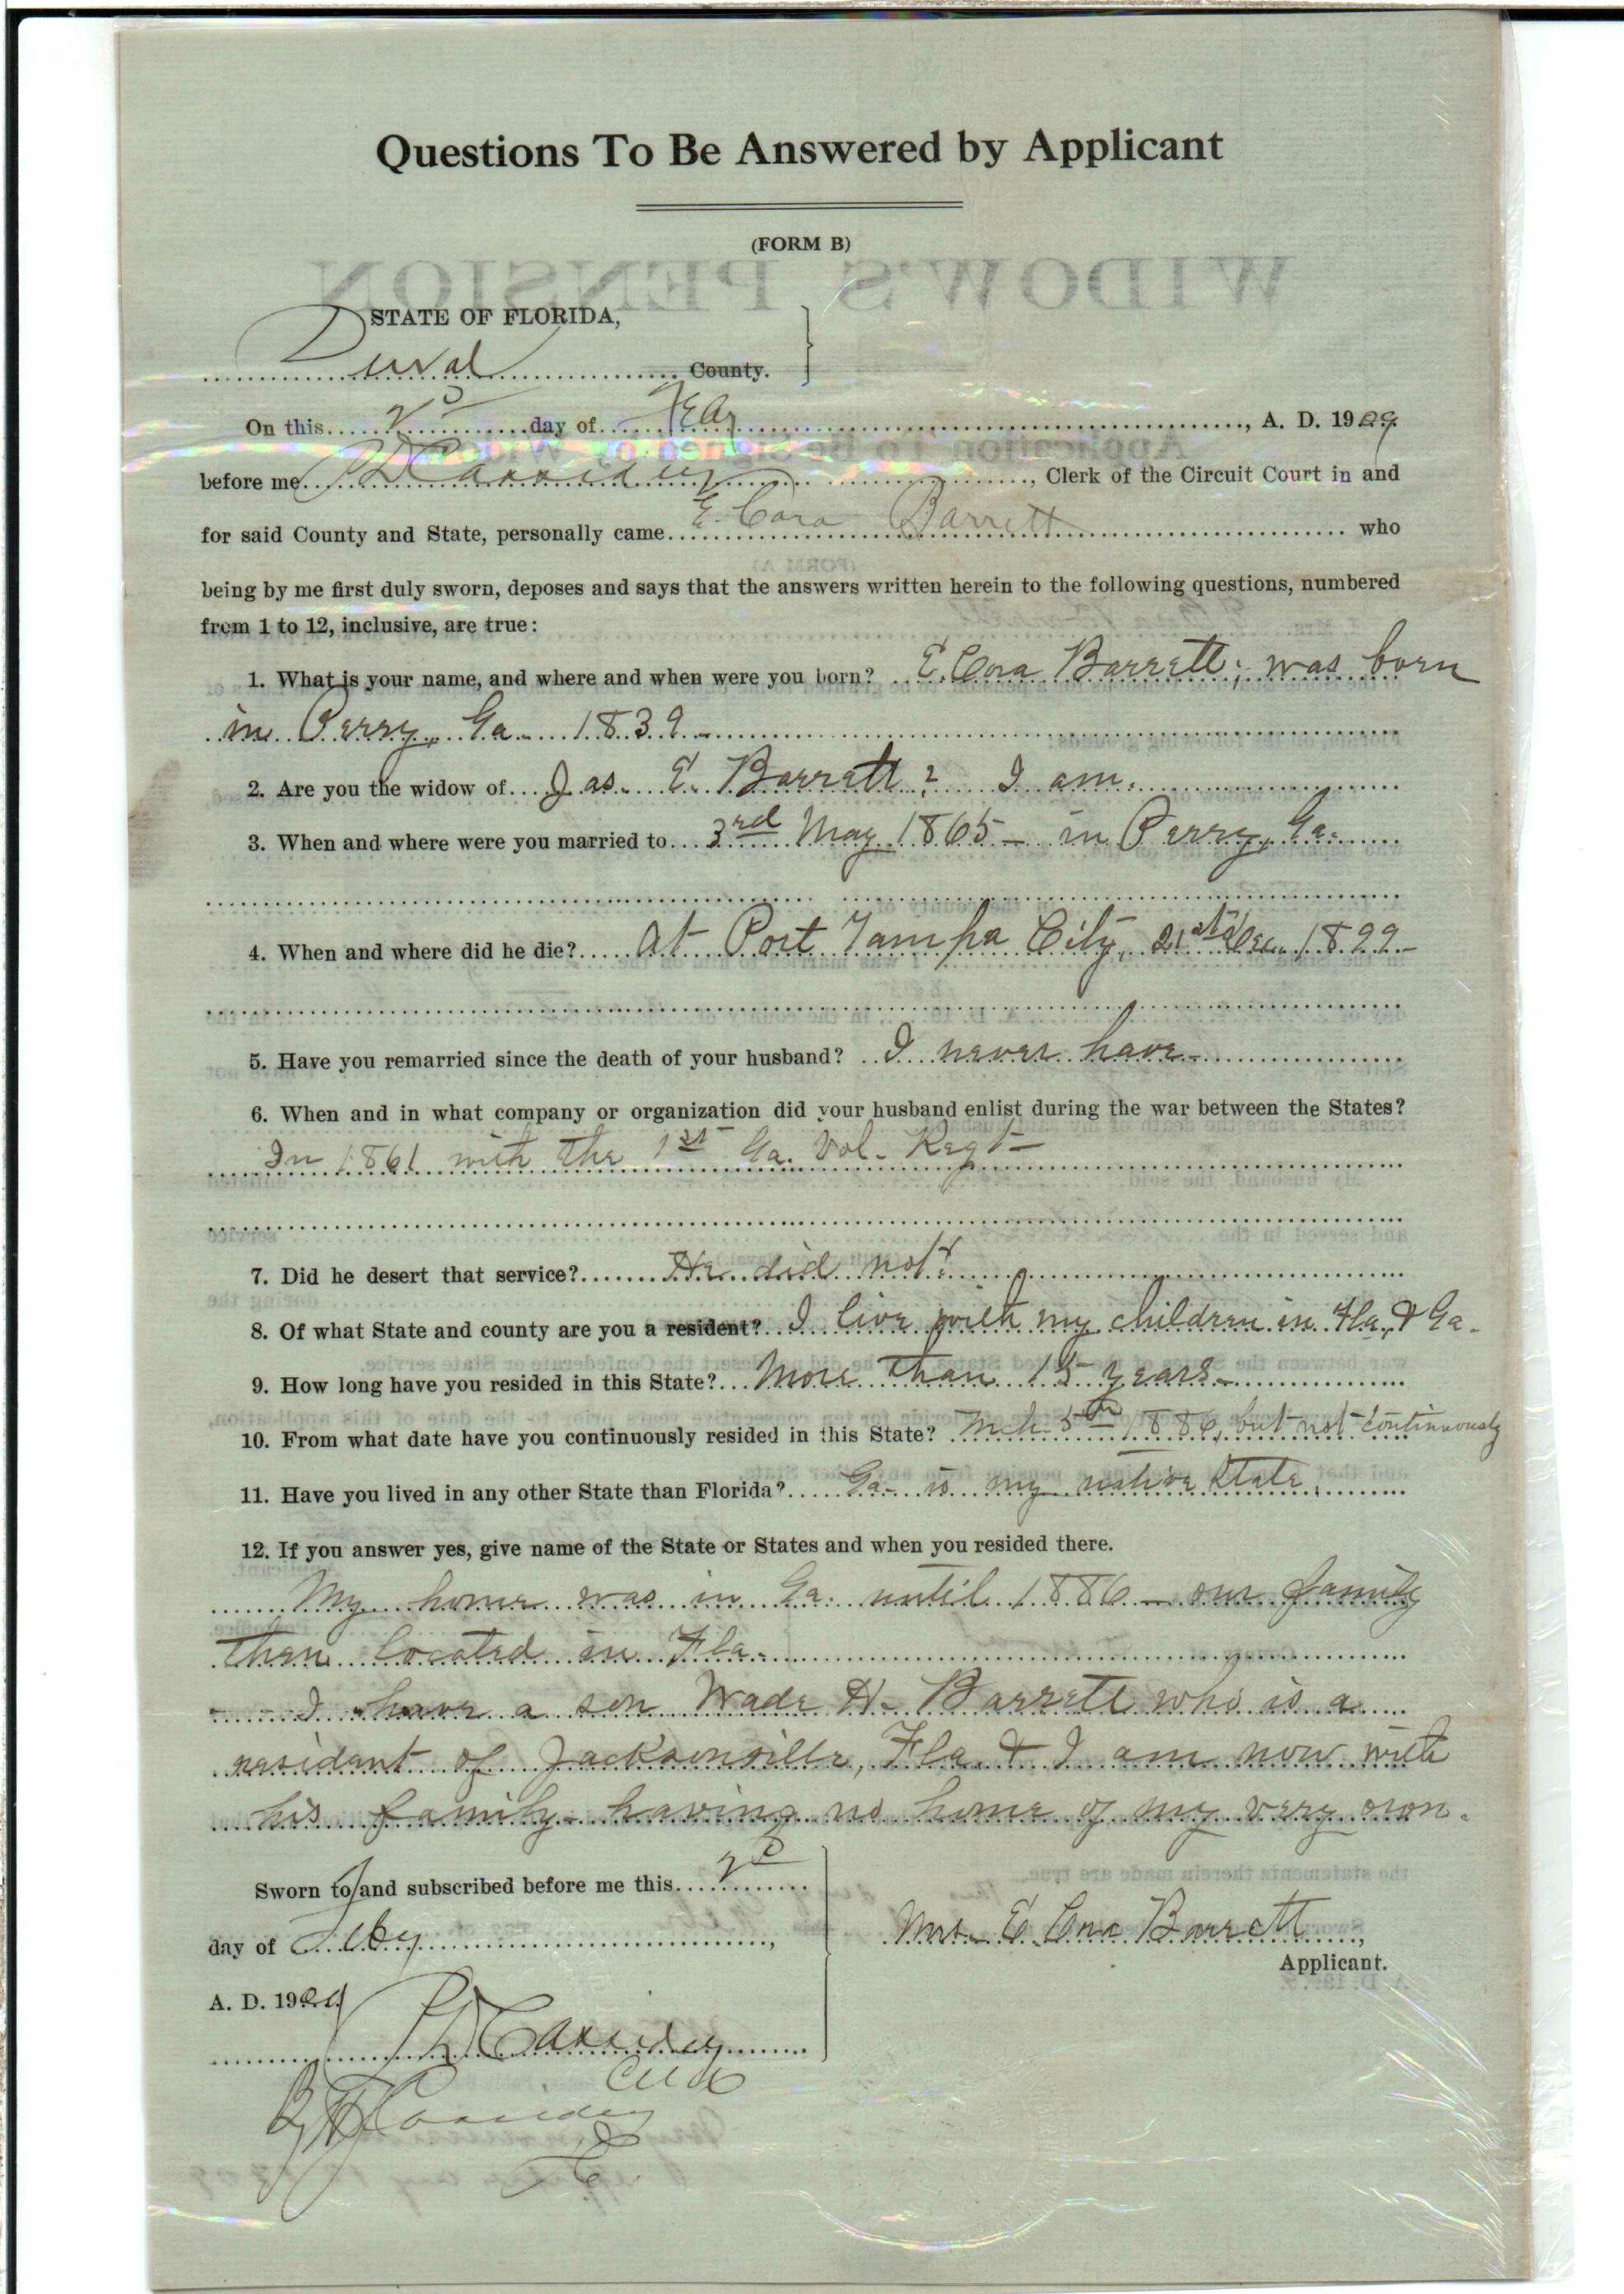 Questions To Be Answered by Applicant
(FORM B)
STATE OF FLORIDA,
Duval County.
On this day of Feby, A. D. 1909
before me P D Cassidey, Clerk of the Circuit Court in and
for said County and State, personally came E. Cora Barrett who
being by me first duly sworn, deposes and says that the answers written herein to the following questions, numbered
from 1 to 12, inclusive, are true:
1. What is your name, and where and when were you born? E. Cora Barrett; was born
in Perry, Ga. 1839-
2. Are you the widow of Jas. E. Barrett? I am.
3. When and where were you married to 3rd May 1865- in Perry, Ga.
4. When and where did he die? At Port Tampa City, 21st Dec. 1899-
5. Have you remarried since the death of your husband? I never have-
6. When and in what company or organization did your husband enlist during the war between the States?
In 1861 with the 1st Ga. Vol. Regt-
7. Did he desert that service? He did not.
8. Of what State and county are you a resident? I live with my children in Fla. & Ga.
9. How long have you resided in this State? More than 15 years-
10. From what date have you continuously resided in this State? Mch. 5th 1886, but not continuously
11. Have you lived in any other State than Florida? Ga- is my native State.
12. If you answer yes, give name of the State or States and when you resided there.
My home was in Ga. until 1886- our family
then located in Fla.
I have a son Wade H. Barrett who is a
resident of Jacksonville, Fla. & I am now with
his family- having no home of my very own.
Sworn to and subscribed before me this
day of Feby,
A. D. 1909
Mrs. E Cora Barrett,
Applicant.
P D Cassidey
Clerk
By H Cassidey
D C
WIDOW'S PENSION
Application To Be Signed by Widow
(FORM A)